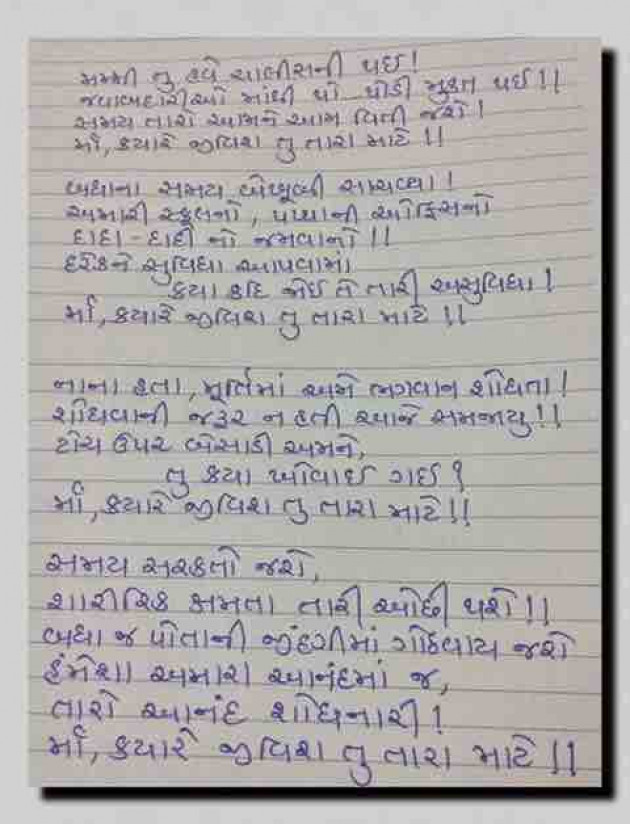 મમ્મી તુ હવે ચાલીસની થઈ!
જવાબદારીઓ માંથી થો થોડી મુક્ત થઈ!!
સમય તારો આમને આમ વિતી જશે!
માઁ, કયારે જીવિશ તુ તારા માટે!!
બધાના સમય બેખૂબી સાચવ્યા!
અમારી સ્કૂલનો, પપ્પાની ઓફિસનો
દાદા-દાદી નો જમવાનો!!
દરેકને સુવિધા આપવામાં
કયા કદિ જોઈ તે તારી અસુવિધા!
માઁ, કયારે જીવિશ તુ તારા માટે!!
નાના હતા, મૂર્તિમાં અમે ભગવાન શોધતા!
શોધવાની જરૂર ન હતી આજે સમજાયુ!!
ટોચ ઉપર બેસાડી અમને,
તુ કયા ખોવાઈ ગઈ?
માઁ, કયારે જીવિશ તુ તારા માટે!!
સમય સરકતો જશે,
શારીરિક ક્ષમતા તારી ઓછી થશે!!
બધા જ પોતાની જીંદગીમાં ગોઠવાય જશે
હંમેશા અમારા આનંદમાં જ,
તારો આનંદ શોધનારી!
માઁ, કયારે જીવિશ તુ તારા માટે!!